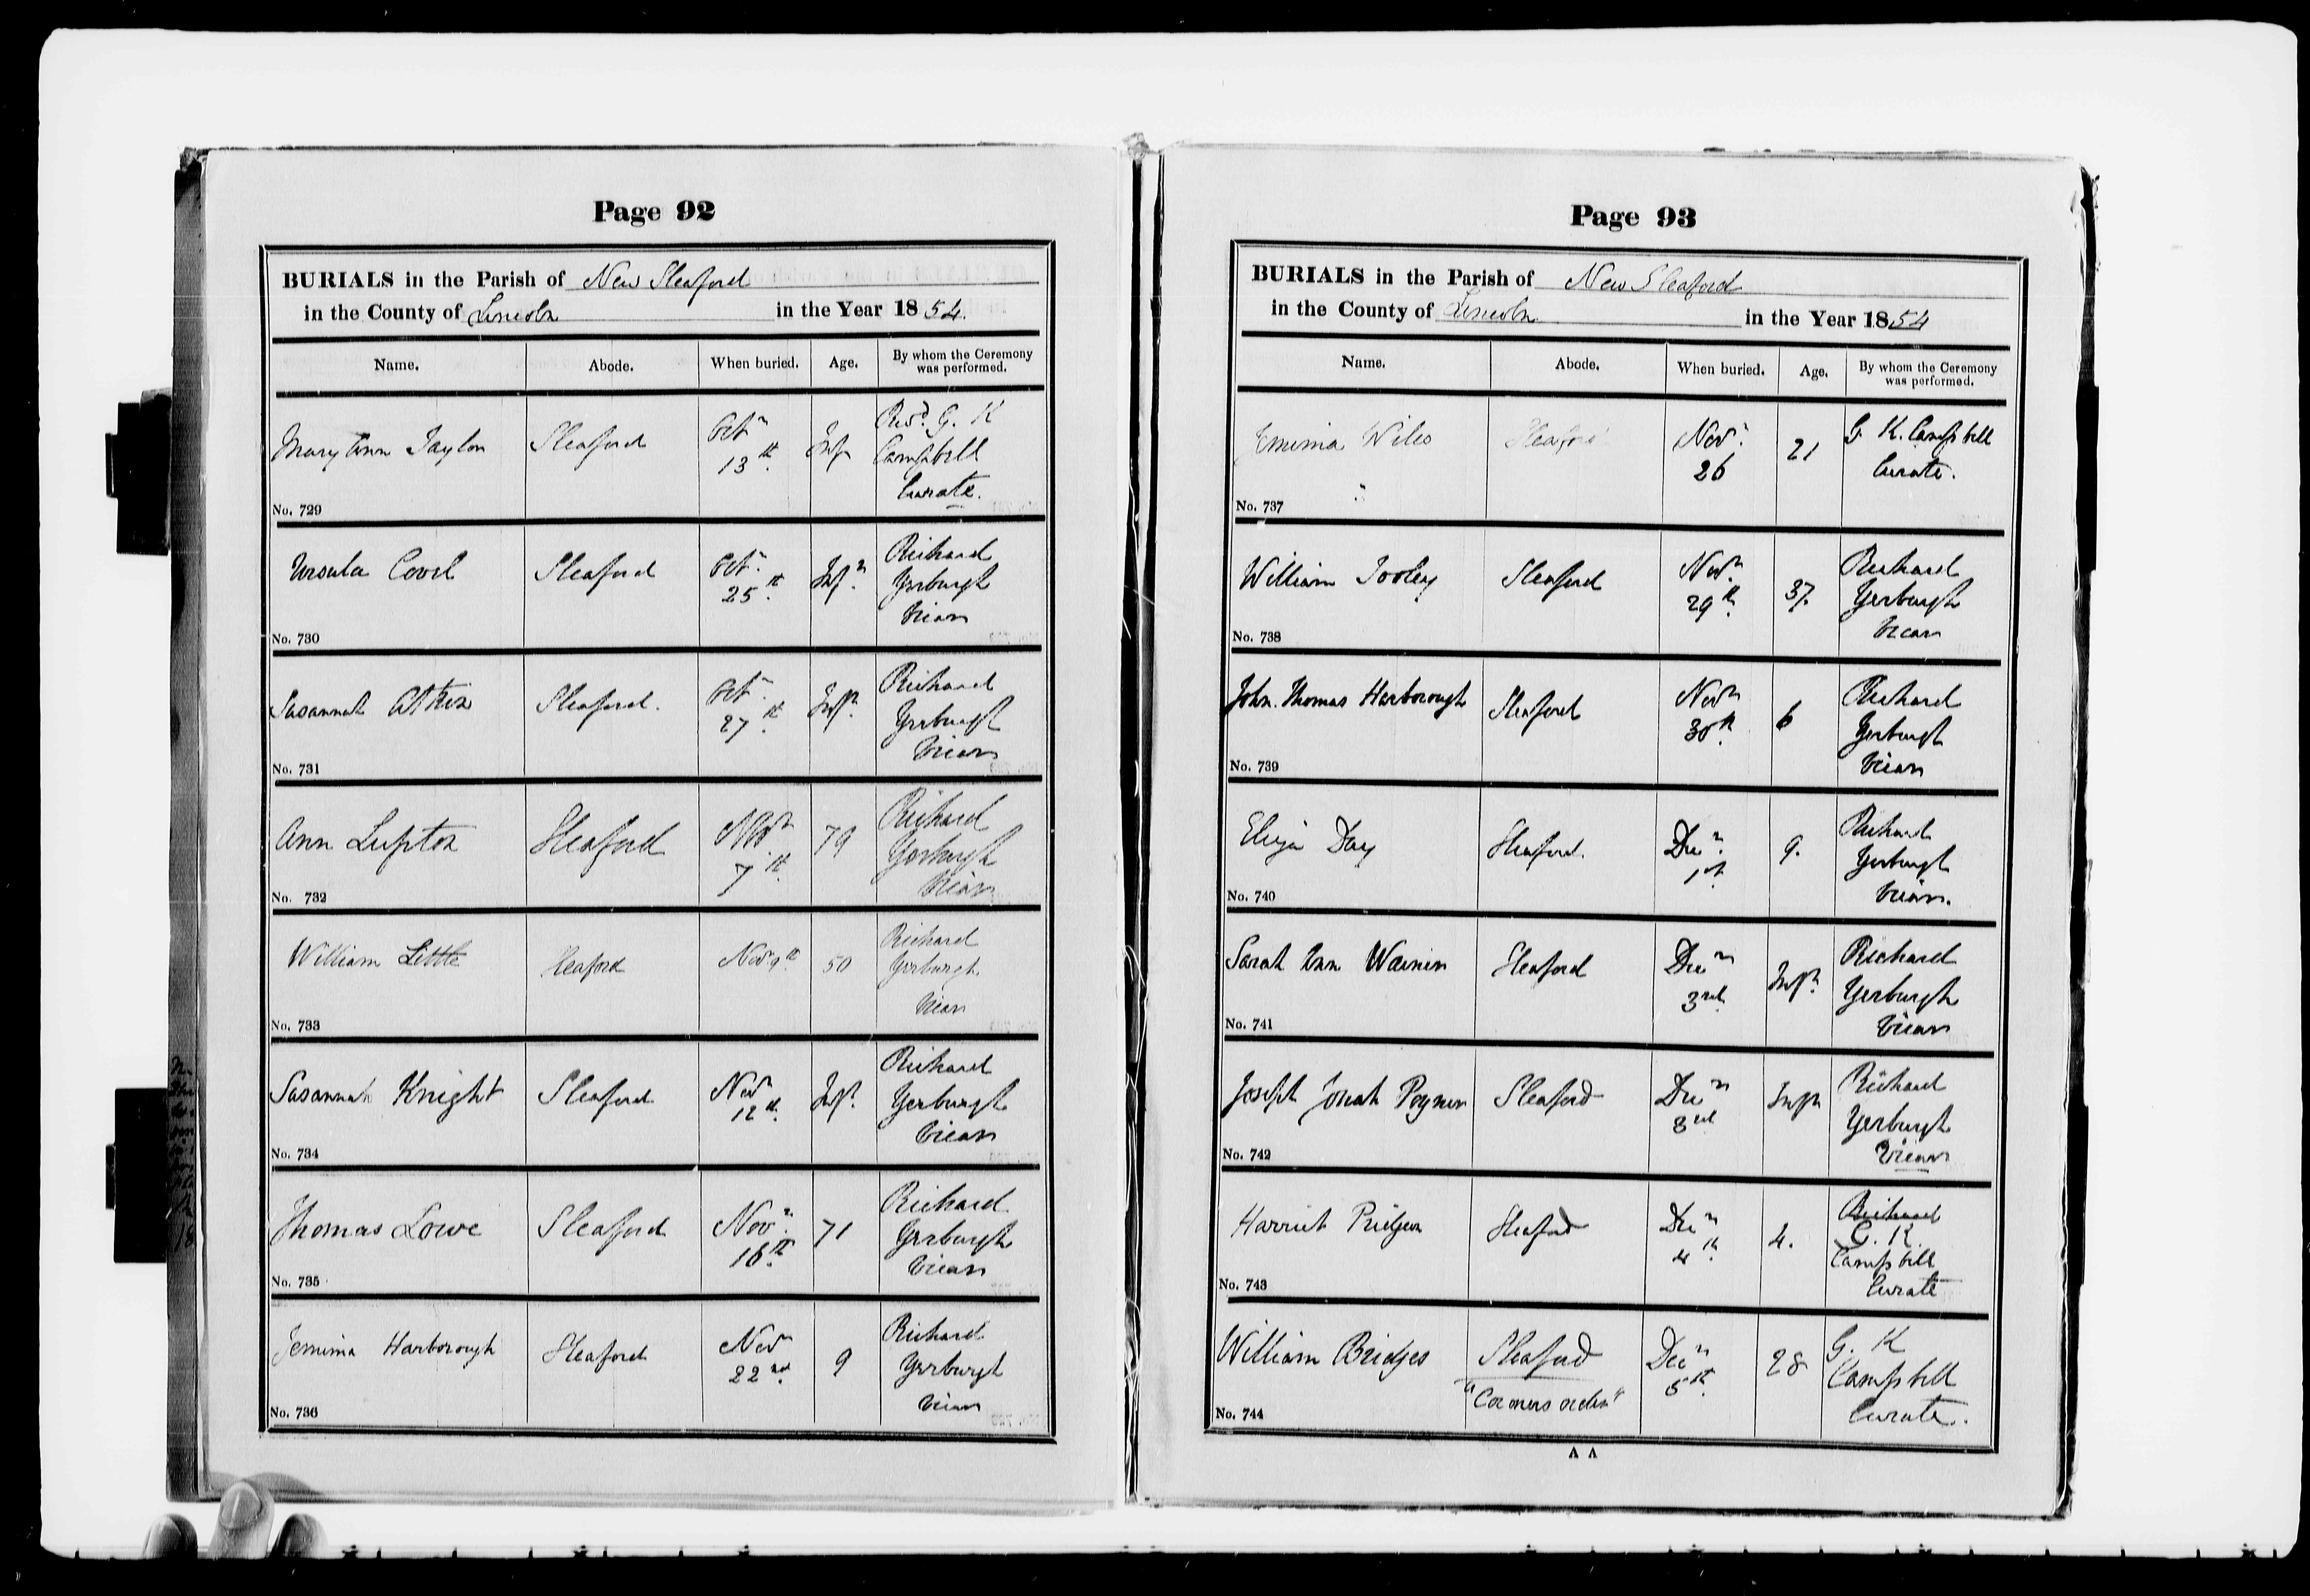 Page 92
BURIALS in the Parish of New Sleaford
in the County of Lincoln in the Year 1854.
Name. Abode. When buried. Age. By whom the Ceremony
was performed.
Mary Ann Taylor Sleaford Octr 13th Inf Revd. G. K
Campbell
Curate.
No. 729
Ursula Sleaford Octr 25th Infn Richard
Yerburgh
Vicar
No. 730
Susannah Atkin Sleaford. Octr 27th Infn Richard
Yerburgh
Vicar
No. 731
Ann Lupton Sleaford Novr 7th 79 Richard
Yerburgh
Vicar
No. 732
William Little Sleaford Novr 9th 50 Richard
Yerburgh
Vicar
No. 733
Susannah Knight Sleaford Novr 12th Infn Richard
Yerburgh
Vicar
No. 734
Thomas Lowe Sleaford Novr 16th 71 Richard
Yerburgh
Vicar
No. 735
Jemima Harborough Sleaford Novr 22nd 9 Richard
Yerburgh
Vicar
No. 736
Page 93
BURIALS in the Parish of New Sleaford
in the County of Lincoln in the Year 1854
Name. Abode. When buried. Age. By whom the Ceremony
was performed.
Wiles Sleaford Novr 26 21 G. K. Campbell
Curate.
No. 737
William Tooley Sleaford Novr 29th 37. Richard
Yerburgh
Vicar
No. 738
John Thomas Harborough Sleaford Novr 30th 6 Richard
Yerburgh
Vicar
No. 739
Eliza Day Sleaford. Decr 1st 9. Richard
Yerburgh
Vicar.
No. 740
Sarah Ann Sleaford Decr 3rd Infn Richard
Yerburgh
Vicar
No. 741
Joseph Jonah Poynor Sleaford Decr 3rd Infn Richard
Yerburgh
Vicar
No. 742
Harriet Pridgeon Sleaford Decr 4th 4. Richard
G. K.
Campbell
Curate
No. 743
William Bridges Sleaford Decr 5th 28 G. K
"Coroners order" Campbell
Curate.
No. 744
A A